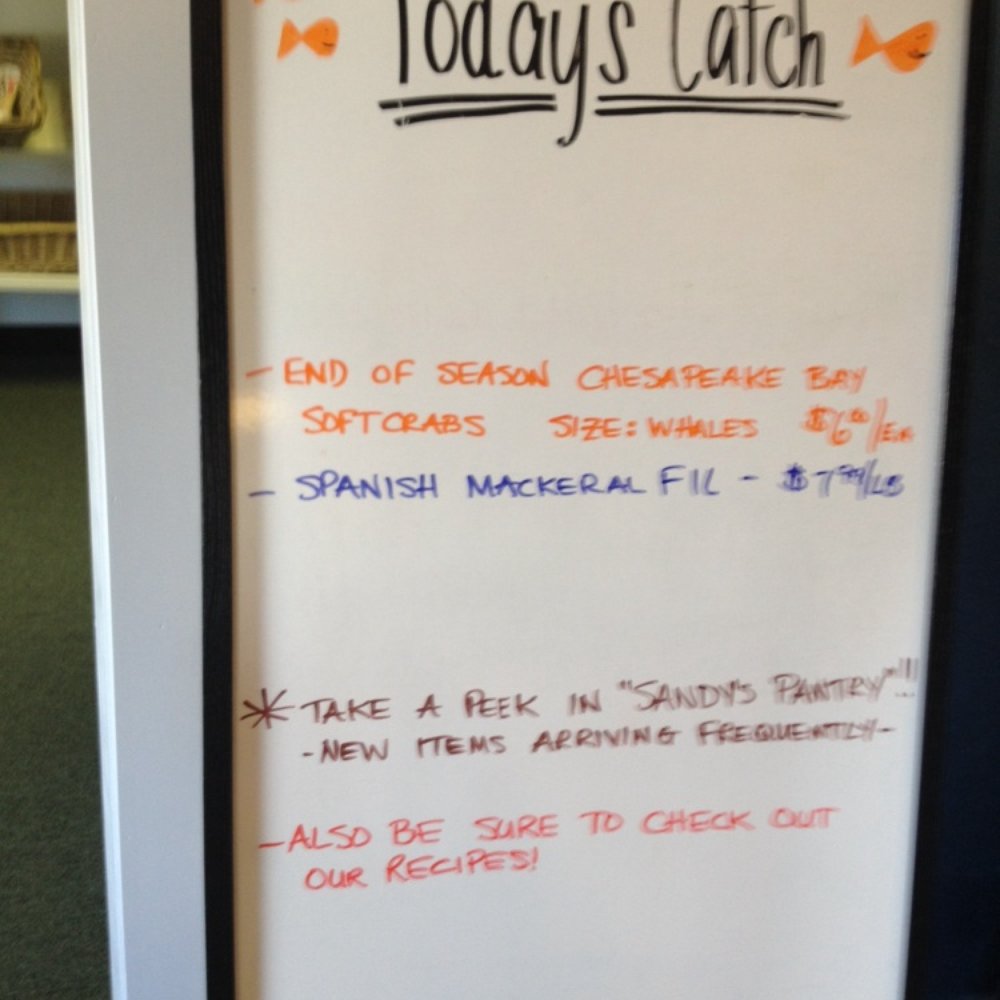 Today's Catch
- END OF SEASON CHESAPEAKE BAY
SOFTCRABS SIZE: WHALES $6.00/EA
- SPANISH MACKERAL FIL - $7.99/LB
* TAKE A PEEK IN "SANDY'S PANTRY"!!!
-NEW ITEMS ARRIVING FREQUENTLY-
-ALSO BE SURE TO CHECK OUT
OUR RECIPES!